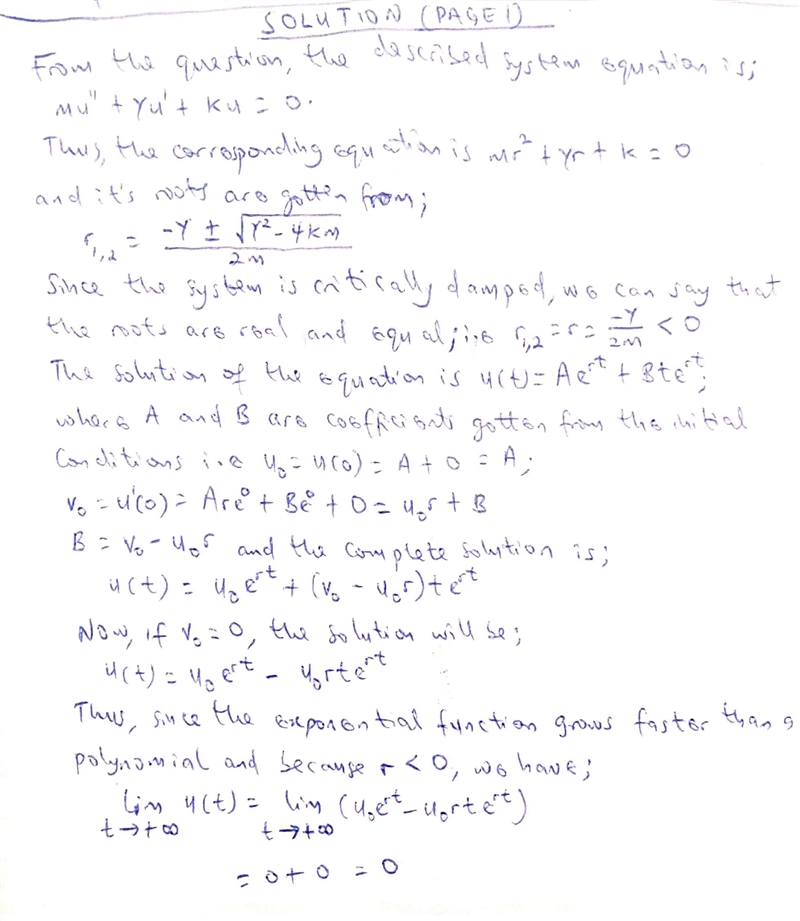 SOLUTION (PAGE 1)
From the question, the described system equation is;
mu'' + γu' + ku = 0.
Thus, the corresponding equation is mr² + γr + k = 0
and it's roots are gotten from;
r₁,₂ = (-γ ± √(γ² - 4km)) / 2m
Since the system is critically damped, we can say that
the roots are real and equal; i.e r₁,₂ = r = -γ/2m < 0
The solution of the equation is u(t) = Ae^rt + Bte^rt;
where A and B are coefficients gotten from the initial
conditions i.e u₀ = u(0) = A + 0 = A;
v₀ = u'(0) = Are⁰ + Be⁰ + 0 = u₀r + B
B = v₀ - u₀r and the complete solution is;
u(t) = u₀e^rt + (v₀ - u₀r)te^rt
Now, if v₀ = 0, the solution will be;
u(t) = u₀e^rt - u₀rte^rt
Thus, since the exponential function grows faster than a
polynomial and because r < 0, we have;
lim u(t) = lim (u₀e^rt - u₀rte^rt)
t→+∞ t→+∞
= 0 + 0 = 0